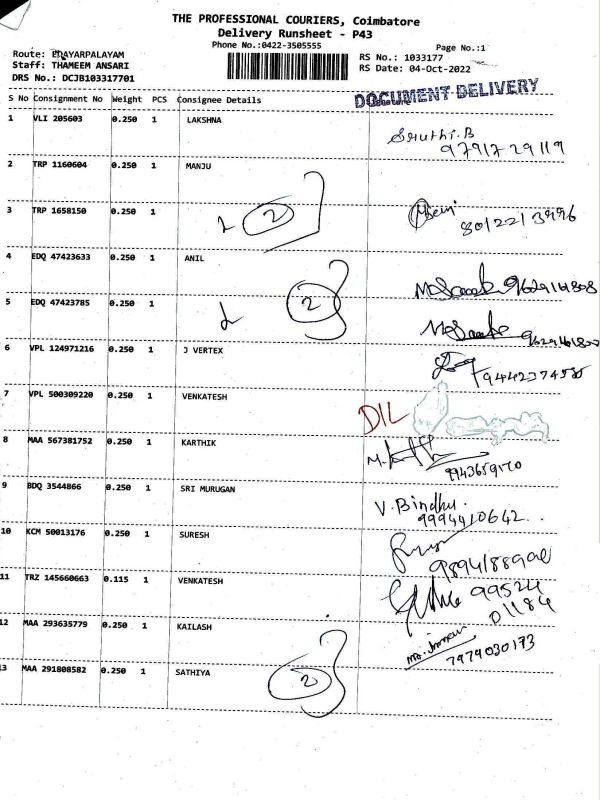 THE PROFESSIONAL COURIERS, Coimbatore
Delivery Runsheet - P43
Phone No.:0422-3505555
Page No.:1
Route: EDAYARPALAYAM
RS No.: 1033177
Staff: THAMEEM ANSARI
RS Date: 04-Oct-2022
DRS No.: DCJB103317701
DOCUMENT DELIVERY
S No Consignment No Weight PCS Consignee Details Signature
1 VLI 205603 0.250 1 LAKSHNA
Sruthi.B
97917 29119
2 TRP 1160604 0.250 1 MANJU
3 TRP 1658150 0.250 1
2
80122 13996
4 EDQ 47423633 0.250 1 ANIL
5 EDQ 47423785 0.250 1
2
6 VPL 124971216 0.250 1 J VERTEX
7 VPL 500309220 0.250 1 VENKATESH
DIL
8 MAA 567381752 0.250 1 KARTHIK
9 BDQ 3544866 0.250 1 SRI MURUGAN
V. Bindhu.
9994410642
10 KCM 50013176 0.250 1 SURESH
11 TRZ 145660663 0.115 1 VENKATESH
99524
01184
12 MAA 293635779 0.250 1 KAILASH
7979030173
13 MAA 291808582 0.250 1 SATHIYA
2